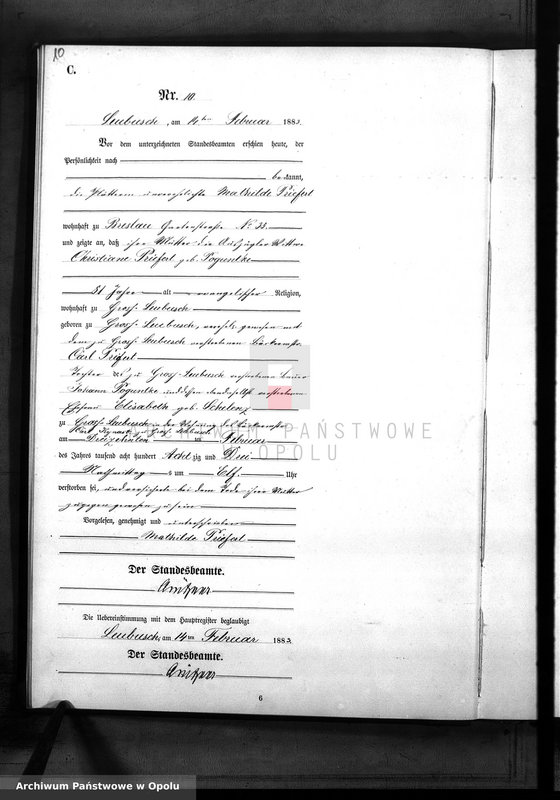 10
C.
Nr. 10.
Leubusch, am 14ten Februar 1883.
Vor dem unterzeichneten Standesbeamten erschien heute, der
Persönlichkeit nach
bekannt,
die unverehelichte Mathilde Priefert
wohnhaft zu Breslau Gartenstraße No 33.
und zeigte an, daß ihre Mutter die Auszügler Wittwe
Christiane Priefert geb. Poguntke
81 Jahre alt evangelischer Religion,
wohnhaft zu Groß Leubusch
geboren zu Groß Leubusch, gewesen mit
dem zu Groß Leubusch verstorbenen
Carl Priefert
Tochter des zu Groß Leubusch verstorbenen Bauer
Johann Poguntke und dessen daselbst verstorbenen
Ehefrau Elisabeth geb. Scholenz
zu Groß Leubusch in der Wohnung des
Karl zu Groß Leubusch
am Dreizehnten ten Februar
des Jahres tausend acht hundert Acht zig und Drei
Nachmittags um Elf Uhr
verstorben sei, und versicherte bei dem Tode ihrer Mutter
zugegen gewesen zu sein
Vorgelesen, genehmigt und unterschrieben
Mathilde Priefert
Der Standesbeamte.
Die Uebereinstimmung mit dem Hauptregister beglaubigt
Leubusch, am 14ten Februar 1883.
Der Standesbeamte.
6
ARCHIWUM PAŃSTWOWE
W OPOLU
Archiwum Państwowe w Opolu